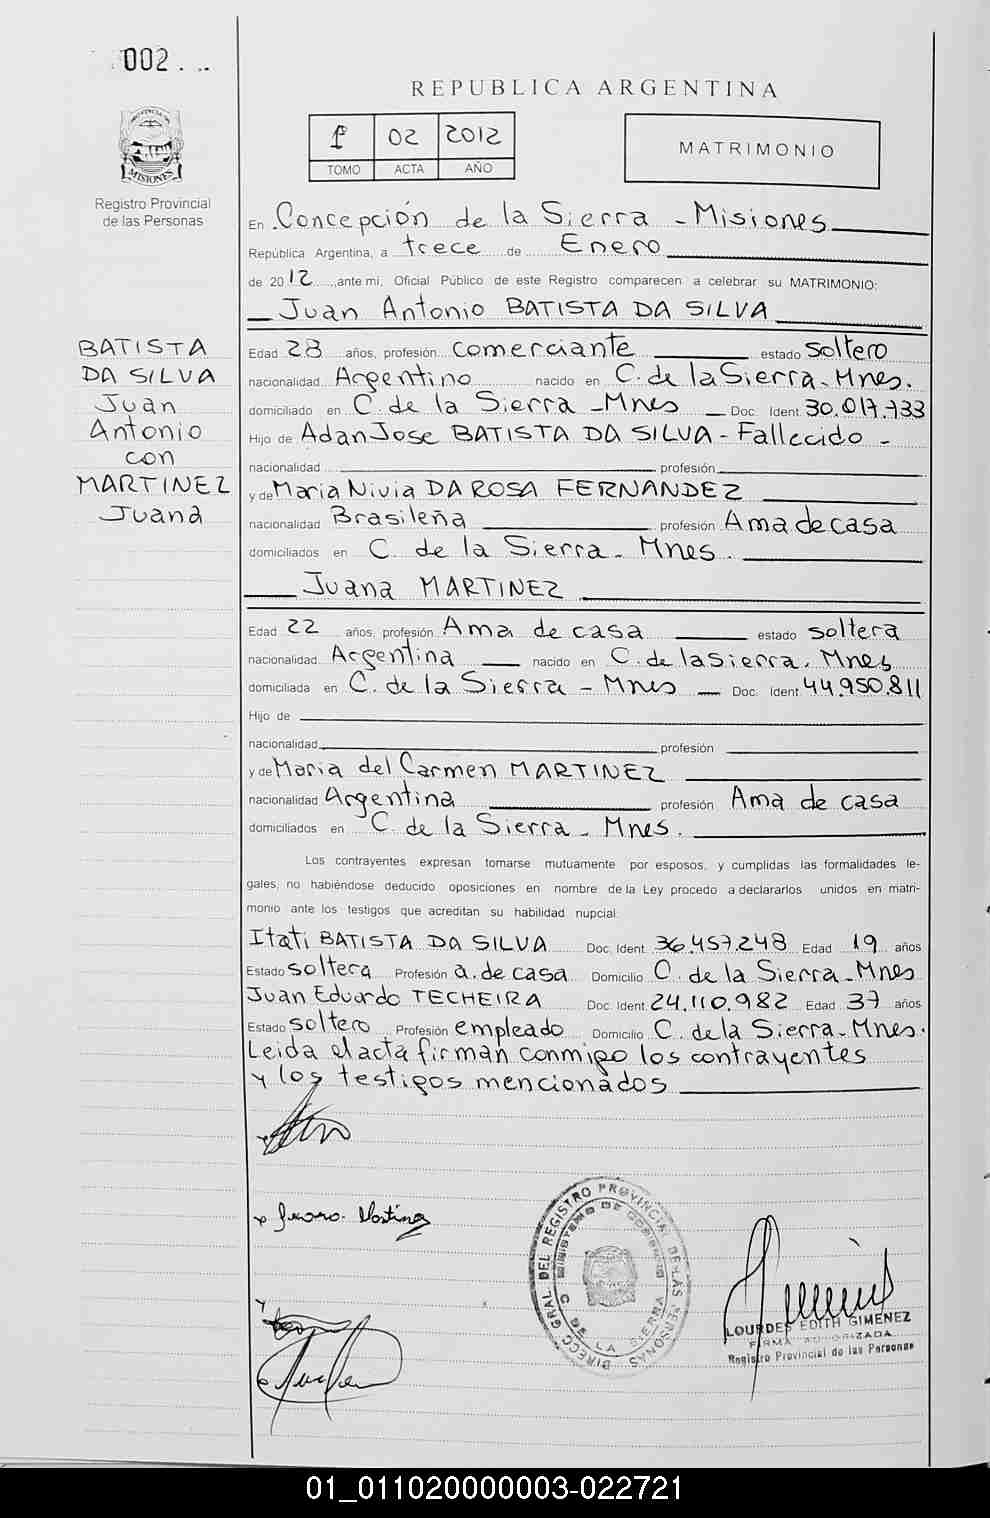 002
REPUBLICA ARGENTINA
1º 02 2012
TOMO ACTA AÑO
MATRIMONIO
PROVINCIA DE
MISIONES
Registro Provincial
de las Personas
En Concepción de la Sierra - Misiones
República Argentina, a trece de Enero
de 2012 ante mí, Oficial Público de este Registro comparecen a celebrar su MATRIMONIO:
Juan Antonio BATISTA DA SILVA
BATISTA
DA SILVA
Juan
Antonio
con
MARTINEZ
Juana
Edad 28 años, profesión comerciante estado soltero
nacionalidad Argentino nacido en C. de la Sierra - Mnes.
domiciliado en C. de la Sierra - Mnes Doc. Ident. 30.017.733
Hijo de Adan Jose BATISTA DA SILVA - Fallecido -
nacionalidad profesión
y de Maria Nivia DA ROSA FERNANDEZ
nacionalidad Brasileña profesión Ama de casa
domiciliados en C. de la Sierra - Mnes.
Juana MARTINEZ
Edad 22 años, profesión Ama de casa estado soltera
nacionalidad Argentina nacido en C. de la sierra. Mnes
domiciliada en C. de la Sierra - Mnes Doc. Ident. 44.950.811
Hijo de
nacionalidad profesión
y de Maria del Carmen MARTINEZ
nacionalidad Argentina profesión Ama de casa
domiciliados en C. de la Sierra - Mnes.
Los contrayentes expresan tomarse mutuamente por esposos, y cumplidas las formalidades le-
gales, no habiéndose deducido oposiciones en nombre de la Ley procedo a declararlos unidos en matri-
monio ante los testigos que acreditan su habilidad nupcial
Itati BATISTA DA SILVA Doc. Ident. 36.457.248 Edad 19 años
Estado soltera Profesión a. de casa Domicilio C. de la Sierra - Mnes
Juan Eduardo TECHEIRA Doc. Ident. 24.110.982 Edad 37 años
Estado soltero Profesión empleado Domicilio C. de la Sierra - Mnes.
Leida el acta firman conmigo los contrayentes
y los testigos mencionados
DIRECC GRAL DEL REGISTRO PROVINCIAL DE LAS PERSONAS
MINISTERIO DE GOBIERNO
C. DE LA SIERRA
LOURDES EDITH GIMENEZ
FIRMA AUTORIZADA
Registro Provincial de las Personas
01_011020000003-022721